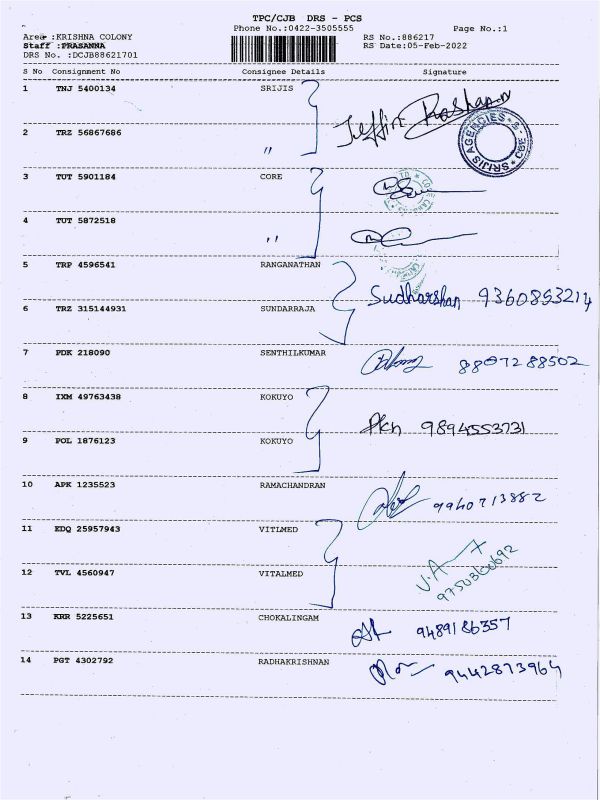 TPC/CJB DRS - PCS
Phone No.:0422-3505555 Page No.:1
Area :KRISHNA COLONY RS No.:886217
Staff :PRASANNA RS Date:05-Feb-2022
DRS No. :DCJB88621701
S No Consignment No Consignee Details Signature
1 TNJ 5400134 SRIJIS
2 TRZ 56867686 "
SRIJIS AGENCIES * CBE *
3 TUT 5901184 CORE
4 TUT 5872518 "
5 TRP 4596541 RANGANATHAN
Sudharshan 9360853214
6 TRZ 315144931 SUNDARRAJA
7 PDK 218090 SENTHILKUMAR 8807288502
8 IXM 49763438 KOKUYO
9894553731
9 POL 1876123 KOKUYO
10 APK 1235523 RAMACHANDRAN 9940713882
11 EDQ 25957943 VITLMED
V.A
12 TVL 4560947 VITALMED 9750360692
13 KRR 5225651 CHOKALINGAM 9489186357
14 PGT 4302792 RADHAKRISHNAN 9442873964